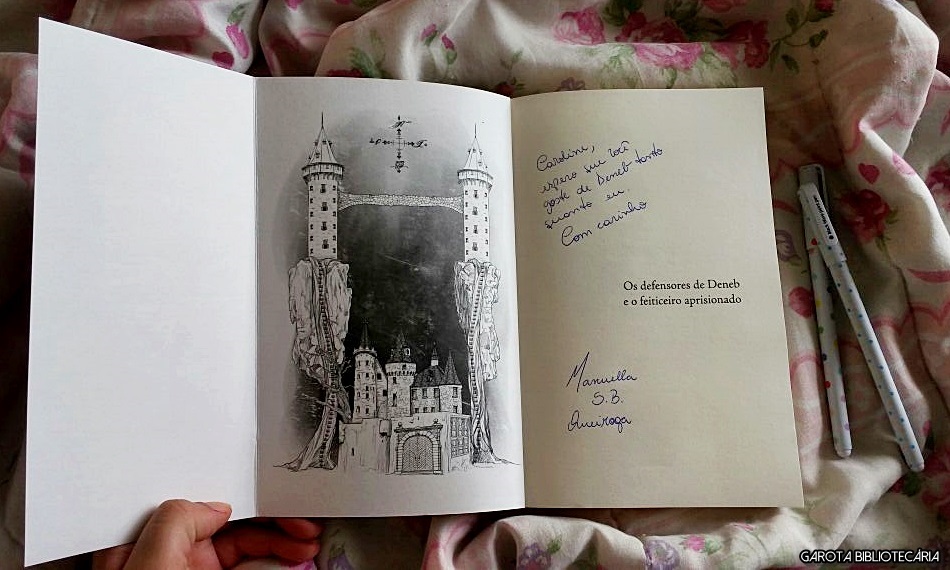 Caroline,
espero que você
goste de Deneb tanto
quanto eu.
Com carinho
Os defensores de Deneb
e o feiticeiro aprisionado
Manuella
S.B.
Queiroga
GAROTA BIBLIOTECÁRIA